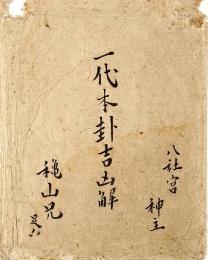 八社宮
神主
一代本卦吉凶解
穐山兄